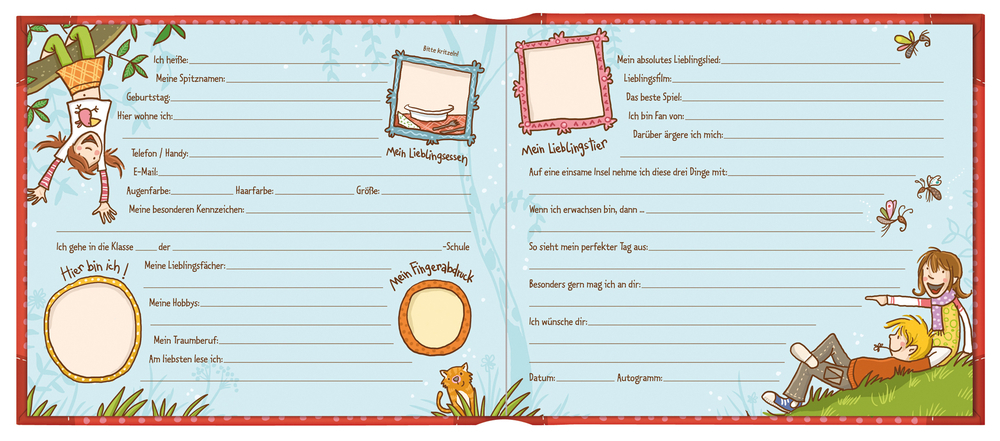 Ich heiße:
Meine Spitznamen:
Geburtstag:
Hier wohne ich:
Telefon / Handy:
E-Mail:
Augenfarbe: Haarfarbe: Größe:
Meine besonderen Kennzeichen:
Bitte kritzeln!
Mein Lieblingsessen
Ich gehe in die Klasse der -Schule
Hier bin ich!
Meine Lieblingsfächer:
Meine Hobbys:
Mein Traumberuf:
Am liebsten lese ich:
Mein Fingerabdruck
Mein Lieblingstier
Mein absolutes Lieblingslied:
Lieblingsfilm:
Das beste Spiel:
Ich bin Fan von:
Darüber ärgere ich mich:
Auf eine einsame Insel nehme ich diese drei Dinge mit:
Wenn ich erwachsen bin, dann ...
So sieht mein perfekter Tag aus:
Besonders gern mag ich an dir:
Ich wünsche dir:
Datum: Autogramm: